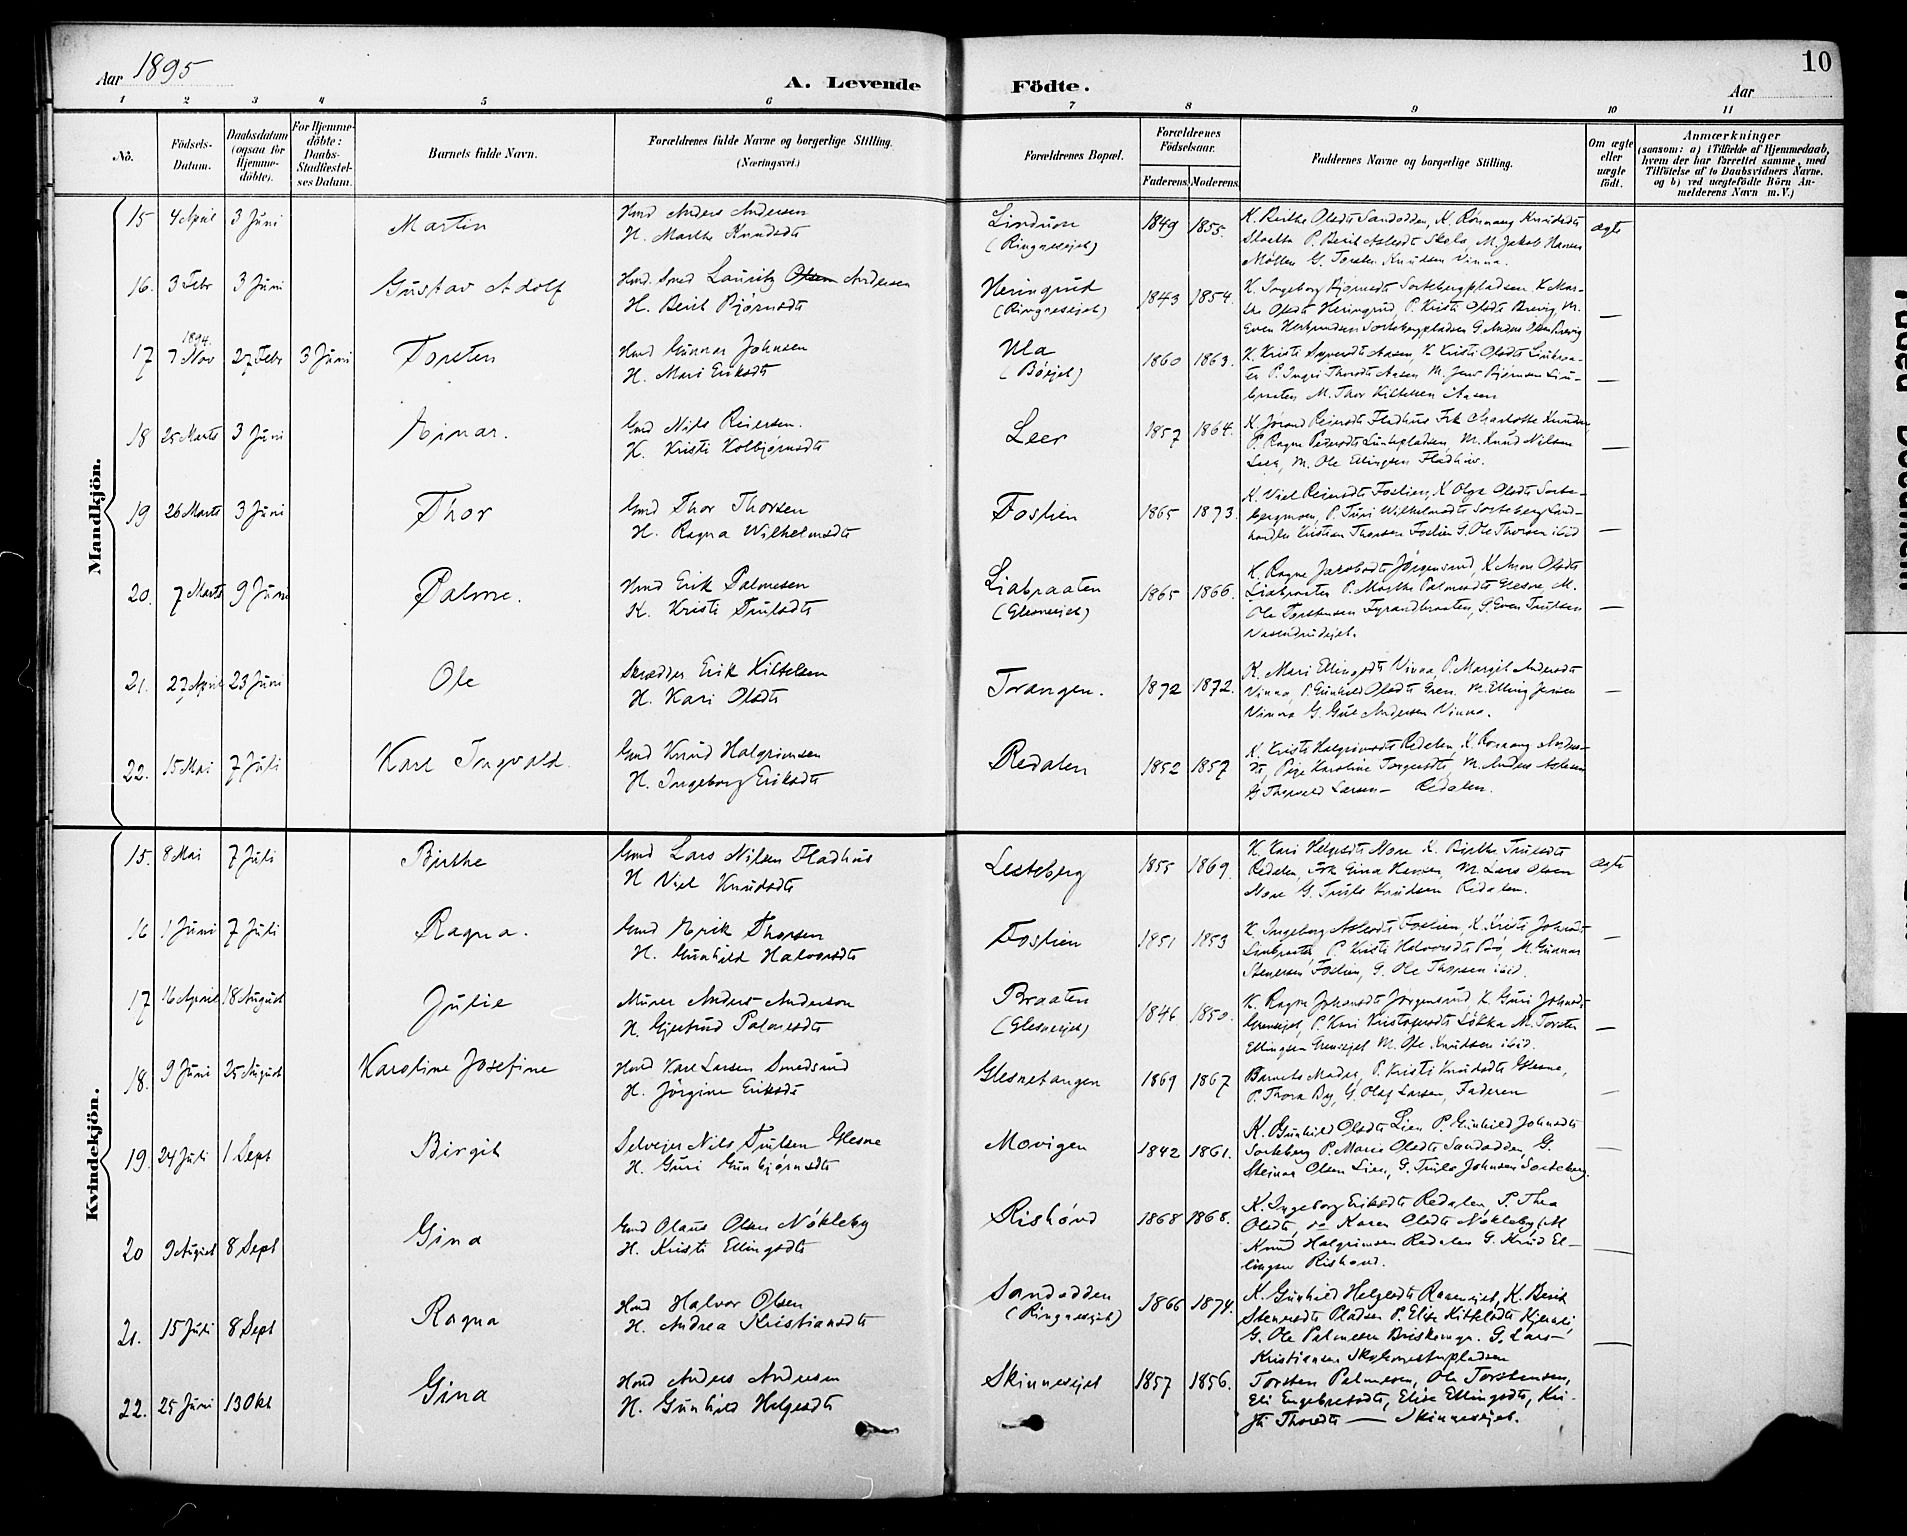 Aar 1895
A. Levende
Födte.
10
Aar
1 2 3 4 5 6 7 8 9 10 11
No.
Födsels-
Datum.
Daabsdatum
(ogsaa for
Hjemme-
döbte).
For Hjemme-
döbte:
Daabs-
Stadfæstel-
ses Datum.
Barnets fulde Navn.
Forældrenes fulde Navne og borgerlige Stilling.
(Næringsvei.)
Forældrenes Bopæl.
Forældrenes
Födselsaar.
Faderens. Moderens.
Faddernes Navne og borgerlige Stilling.
Om ægte
eller
uægte
födt.
Anmærkninger
(saasom: a) i Tilfælde af Hjemmedaab,
hvem der har forrettet samme, med
Tilföielse af to Daabsvidners Navne.
og b) ved uægtefödte Börn An-
melderens Navn m. V.)
Mandkjön.
15 4 April 3 Juni Martin
Hmd Anders Andersen
H. Marthe Knudsdt
(Ringnesejet)
1849 1855.
K. Birthe Olsdt Sandodden, K. Rönnaug Knudsdt
P. Berit Aslesdt M. Jakob Hansen
Möllen G. Torsten Knudsen Vinna.
ægte
16. 3 Febr 3 Juni Gustav Adolf
Hmd. Smed Lauritz Olsen Andersen
H. Berit Björnsdt
Heringrud
(Ringnesejet)
1843 1854.
K. Ingeborg Björnsdt Sortebergpladsen K. Mar-
the Olsdt Heringrud, P. Kristi Olsdt Brevig M.
Even Herbrandsen Sortebergpladsen G. Anders Olsen Brevig
—
17 1894. 7 Nov 27 Febr 3 Juni Torsten
Hmd Gunnar Johnsen
H. Mari Eriksdt
Ula
(Böejet)
1860 1863.
K. Kristi Syversdt Aasen, K. Kristi Olsdt Liabraa-
ten P. Ingri Thorsdt Aasen M. Jens Björnsen Lia-
braaten M. Thor Kittelsen Aasen
—
18 25 Marts 3 Juni Ejnar.
Gmd Nils Reiersen.
K. Kristi Kolbjörnsdt
Leer
1857 1864.
K. Jörand Reiersdt Fladhus Frk Charlotte Knudsen
P. Ragne Pedersdt M. Knud Nilsen
Leer, M. Ole Ellingsen Fladhus.
—
19 26 Marts 3 Juni Thor
Gmd Thor Thorsen
H. Ragna Wilhelmsdt
Foslien
1865 1873.
K. Viel Reiersdt Foslien, K Olga Olsdt Sorte-
bergmoen, P. Turi Wilhelmsdt Sorteberg Land-
handler Kristian Thorsen Foslien G. Ole Thorsen ibid
—
20. 7 Marts 9 Juni Palme.
Hmd Erik Palmesen
K. Kristi Trulsdt
Liabraaten
(Glesneejet)
1865 1866.
K. Ragne Jakobsdt Jörgensrud, K. Anne Olsdt
Liabraaten P. Marthe Palmesdt Glesne, M.
Ole Torstensen Fyrandbraaten, G. Even Trulsen
—
21. 27 April 23 Juni Ole
Skrædder Erik Kittelsen
H. Kari Olsdt
Trangen.
1872 1872.
K. Mari Ellingsdt Vinna, P. Margit Andersdt
Vinna P. Gunhild Olsdt Gren. M. Elling Jensen
Vinna G. Gul Andersen Vinna.
—
22. 15 Mai 7 Juli Karl Ingvald.
Gmd Knud Halgrimsen
H. Ingeborg Eriksdt
Redalen
1852 1857
K. Kristi Halgrimsdt Redalen, K. Rönnaug Anders-
dt, Pige Karoline Torgersdt, M. Anders Aslesen
G. Thorvald Larsen — Redalen.
Kvindekjön.
15. 8 Mai 7 Juli Birthe
Gmd Lars Nilsen Fladhus
H Viel Knudsdt
Lesteberg
1855 1869.
K. Kari Helgesdt More K. Birthe Trulsdt
Redalen, Frk Gina Hansen, M. Lars Olsen
More G. Truls Knudsen Redalen.
ægte
16 1 Juni 7 Juli Ragna.
Gmd Erik Thorsen
H. Gunhild Halvorsdt
Foslien
1851 1853
K. Ingeborg Aslesdt Foslien, K. Kristi Johnsdt
Liabraaten, P. Kristi Halvorsdt Bö, M. Gunnar
Stenersen Foslien, G. Ole Thorsen ibid.
—
17 16 April 18 August Julie
Murer Anders Anderson
H. Gjertrud Palmesdt
Braaten
(Glesneejet)
1846 1850.
K. Ragne Johansdt Jörgensrud K. Guri Johnsdt
Grenseejet, P. Kari Kristofersdt Lökka M. Torsten
Ellingsen Grenseejet M. Ole Knudsen ibid.
—
18. 9 Juni 25 August Karoline Josefine
Hmd Karl Larsen Smedsrud
H. Jörgine Eriksdt
Glesnetangen
1869 1867
Barnets Moder, P. Kristi Knudsdt Glesne,
P. Thora By, G. Olaf Larsen, Faderen
—
19. 24 Juli 1 Sept Birgit
Selvejer Nils Trulsen Glesne
H. Guri Gunbjörnsdt
Movigen
1842 1861.
K. Gunhild Olsdt Lien P. Gunhild Johnsdt
Sorteberg P. Marie Olsdt Sandodden, G.
Steinar Olsen Lien, G. Truls Johnsen Sorteberg.
—
20 9 August 8 Sept Gina
Gmd Olaus Olsen Nökleby
H. Kristi Ellingsdt
Rishövd
1868 1868.
K. Ingeborg Eriksdt Redalen P. Thea
Olsdt, Karen Olsdt Nökleby, M
Knud Halgrimsen Redalen G. Knud El-
lingsen Rishövd.
—
21. 15 Juli 8 Sept Ragna
Hmd Halvor Olsen
H. Andrea Kristiansdt
Sandodden
(Ringnesejet)
1866 1874.
K. Gunhild Helgesdt K. Berit
Stenersdt Pladsen P. Elise Kittelsdt
G. Ole Palmesen G. Lars
Kristiansen Skolemesterpladsen
—
22. 25 Juni 13 Okt Gina
Hmd Anders Andersen
H. Gunhild Helgesdt
Skinnesejet
1857 1856.
Torsten Palmesen, Ole Torstensen,
Eli Engebretsdt, Elise Ellingsdt, Kri-
sti Thorsdt — Skinnesejet.